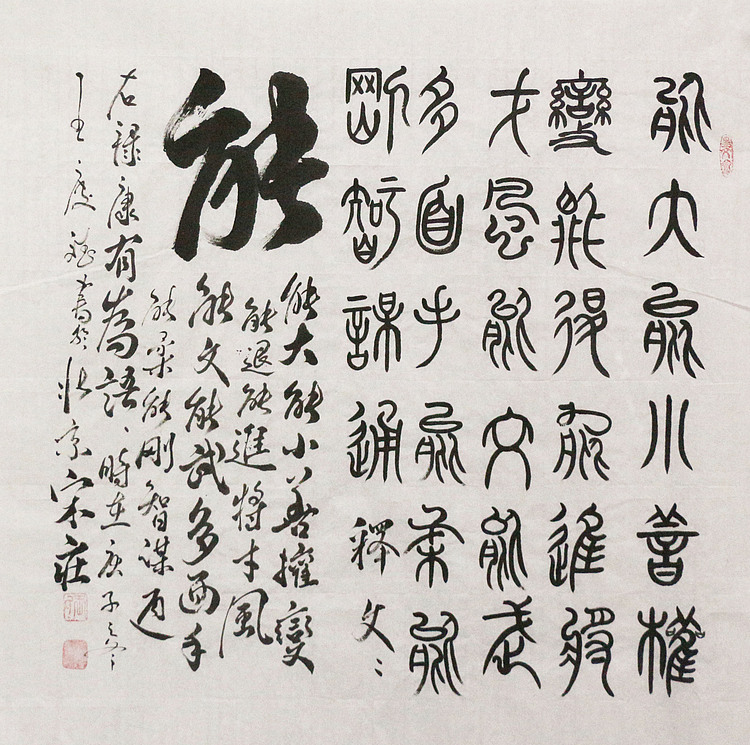 能大能小善權
變能退能進將
才風能文能武
多面手能柔能
剛智謀通釋文
能
能大能小善權變
能退能進將才風
能文能武多面手
能柔能剛智謀通
右録康有為語、時在庚子之冬
王書於北京宋庄